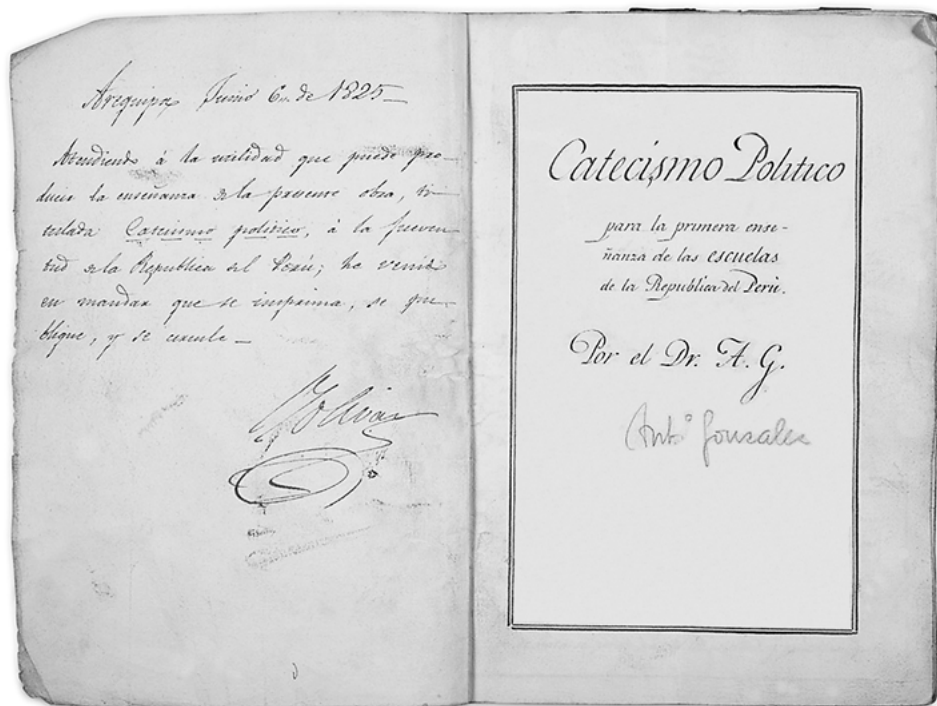 Arequipa Junio 6,, de 1825_
Atendiendo à la utilidad que puede pro-
ducir la enseñanza de la presente obra, ti-
tulada Catecismo politico, à la juven-
tud de la Republica del Perú; he venido
en mandar que se imprima, se pu-
blique, y se circule_
Bolivar
Catecismo Politico
para la primera ense-
ñanza de las escuelas
de la Republica del Perú.
Por el Dr. A. G.
Antº Gonzalez